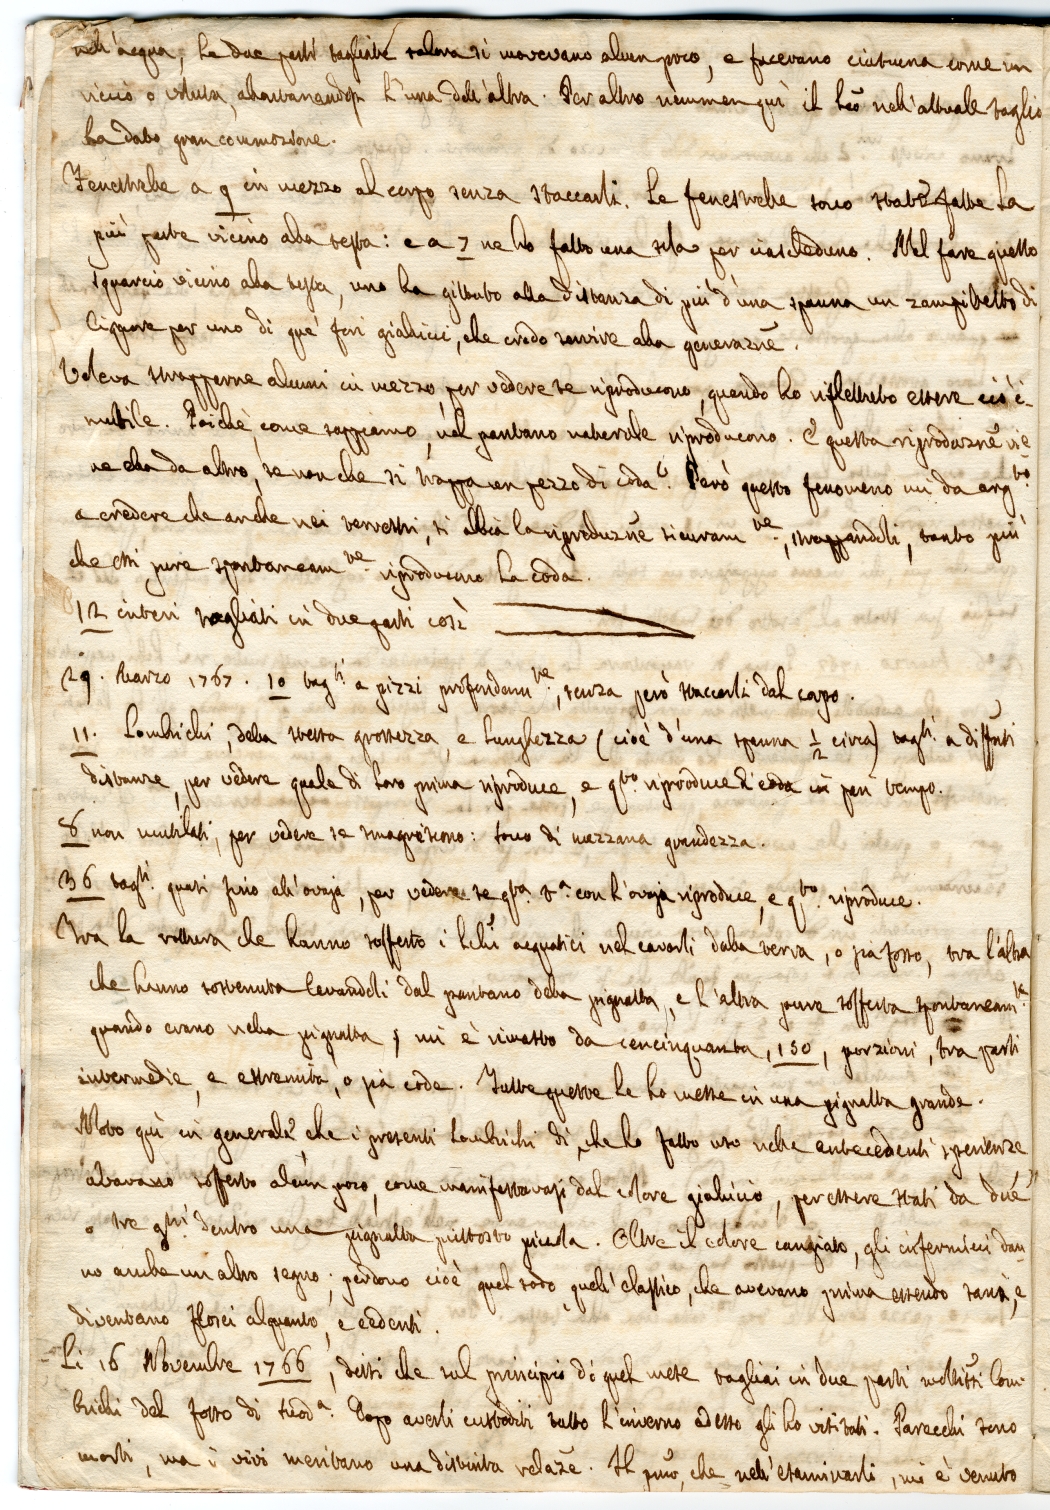 nell'acqua, le due parti tagliate talora si movevano alcun poco, e facevano ciascuna come un
riccio o voluta, allontanandosi l'una dall'altra. Per altro nemmen quì il Leõ nell'attuale taglio
ha dato gran commozione.
Fenestrelle a 9 in mezzo al corpo senza staccarli. Le fenestrelle sono state fatte la
più parte vicino alla testa: e a 7 ne ho fatto una sola per ciascheduno. Nel fare questo
squarcio vicino alla testa, uno ha gittato alla distanza di più d'una spanna un zampilletto di
liquore per uno di que' fori giallicci, che credo servire alla generazñe.
Voleva strapparne alcuni in mezzo per vedere se riproducono, quando ho riflettuto essere ciò i-
nutile. Poichè, come sappiamo, nel pantano naturale riproducono. E questa riproduzñe vie
ne ella da altro, se non che si strappa un pezzo di coda? Però questo fenomeno mi da argto.
a credere che anche nei terrestri, si abbia la riproduzñe sicuramte., strappandoli, tanto più
che essi pure spontaneamte. riproducono la coda.
12 interi tagliati in due parti così
29. Marzo 1767. 10 tagti. a pizzi profondamte., senza però staccarli dal corpo.
11. Lombrichi, della stessa grossezza, e lunghezza (cioè d'una spanna 1/2 circa) tagti. a diffñti
distanze, per vedere quale di loro prima riproduce, e qto. riproduce di coda in pari tempo.
8 non mutilati, per vedere se smagriscono: sono di mezzana grandezza.
36 tagti. quasi fino all'ovaja, per vedere se qta. ta con l'ovaja riproduce, e qto. riproduce.
Tra la rottura che hanno sofferto i acquatici nel cavarli dalla terra, o sia fosso, tra l'altra
che hanno sostenuta levandoli dal pantano della pignatta, e l'altra pure sofferta spontaneamte.
quando erano nella pignatta, mi è rimasto da cencinquanta, 150, porzioni, tra parti
intermedie, e estremità, o sia code. Tutte queste le ho messe in una pignatta grande.
Noto quì in generale, che i presenti Lombrichi di che ho fatto uso nelle antecedenti sperienze
avevano sofferto alcun poco, come manifestavasi dal colore gialliccio, per essere stati da due
o tre gni. dentro una pignatta piuttosto picciola. Oltre il colore cangiato, gli infermicci dan-
no anche un altro segno; perdono cioè quel sodo, quell'elastico, che avevano prima essendo sani, e
diventano flosci alquanto, e cedenti.
Li 16 Novembre 1766, dissi che sul principio di quel mese tagliai in due parti moltissĩ Lom-
brichi del fosso di Dopo averli custoditi tutto l'inverno adesso gli ho visitati. Parecchi sono
morti, ma i vivi meritano una distinta relazñe. Il pmõ, che nell'esaminarli, mi è venuto